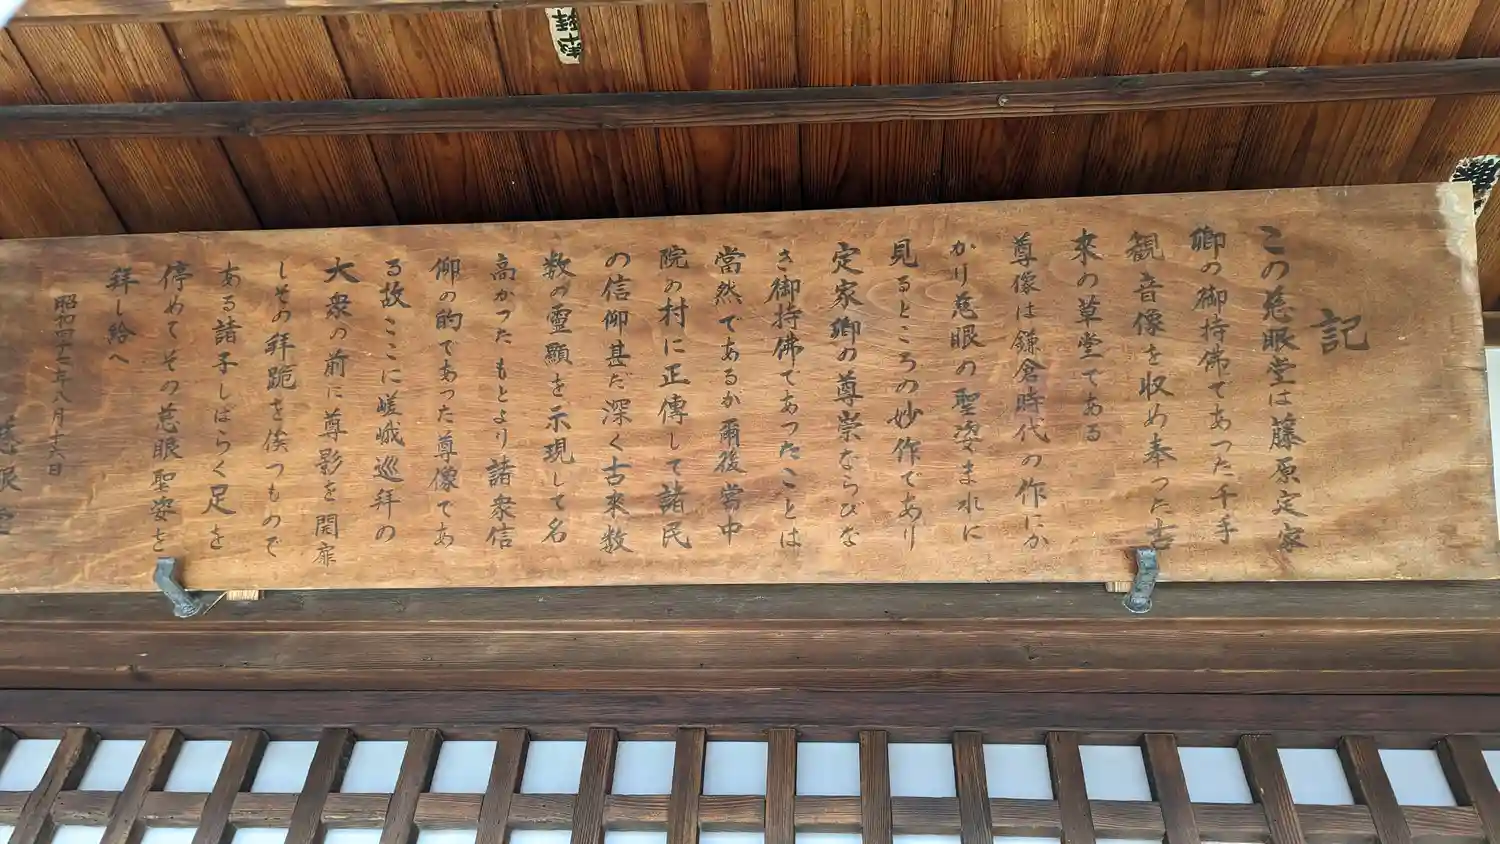 記
この慈眼堂は藤原定家
卿の御持佛であった千手
観音像を収め奉った古
来の草堂である
尊像は鎌倉時代の作にか
かり慈眼の聖姿まれに
見るところの妙作であり
定家卿の尊崇ならびな
き御持佛であったことは
當然であるが爾後當中
院の村に正傳して諸民
の信仰甚だ深く古来数
数の霊顯を示現して名
高かったもとより諸衆信
仰の的であった尊像であ
る故ここに嵯峨巡拜の
大衆の前に尊影を開扉
しその拜跪を俟つものぞ
ある諸子しばらく足を
停めてその慈眼聖姿を
拜し給へ
昭和四十七年八月十六日
慈眼堂